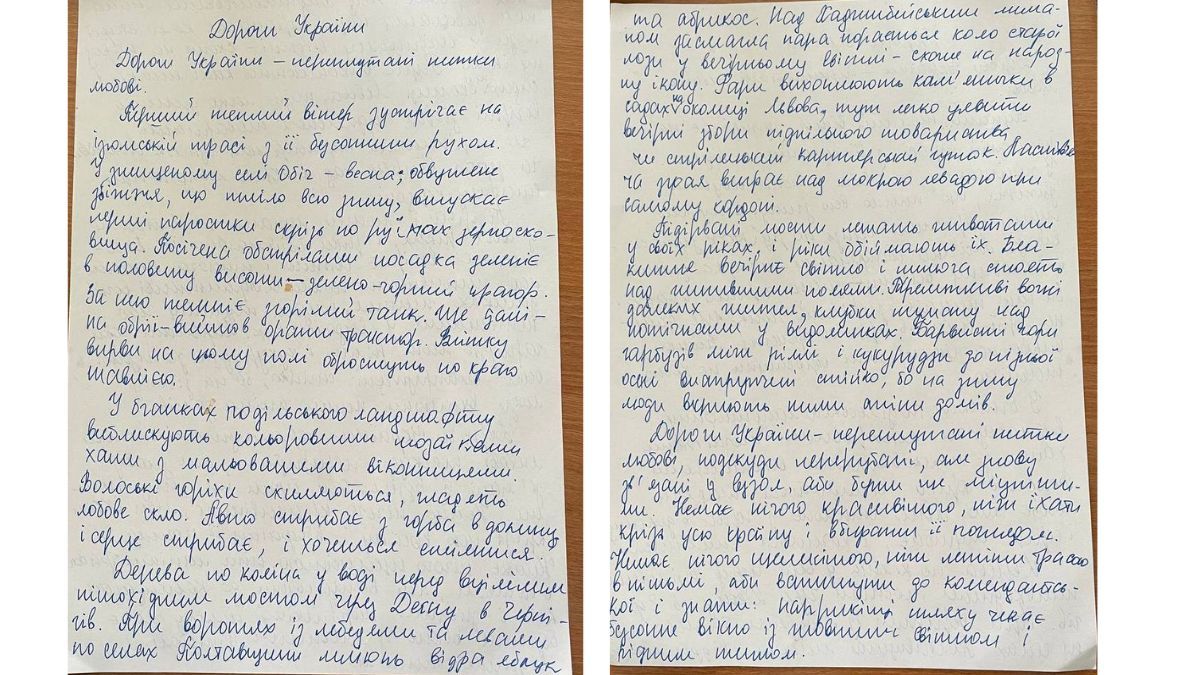 Дороги України
Дороги України – переплутані нитки
любові.
Перший теплий вітер зустрічає на
ізюмській трасі з її безсонним рухом.
У знищеному селі обіч – весна; обвуглене
збіжжя, що тліло всю зиму, випускає
перші паростки скрізь по руїнах зерноско-
вища. Посічена обстрілами посадка зеленіє
в половину висоти – зелено-чорний прапор.
За нею темніє згорілий танк. Ще далі –
на обрії – вийшов орати трактор. Влітку
вирви на цьому полі обростуть по краю
шавлією.
У бганках подільського ландшафту
виблискують кольоровими мозаїками
хати з мальованими віконницями.
Волоські горіхи схиляються, гладять
лобове скло. Авто стрибає з горба в долину
і серце стрибає, і хочеться сміятися.
Дерева по коліна у воді перед вцілілим
пішохідним мостом через Десну в Черні-
гів. При воротях із лебедями та левами
по селах Полтавщини миють відра яблук
та абрикос. Над Хаджибейським лима-
ном засмагла пара порається коло старої
лози у вечірньому світлі – схоже на народ-
ну ікону. Фари вихоплюють кам'янички в
садах на околиці Львова, тут легко уявити
вечірні збори підпільного товариства
чи стрілецький картярський гурток. Ластів'я-
ча зграя виграє над мокрою левадою при
самому кордоні.
Підірвані мости лежать животами
у своїх ріках, і ріки обіймають їх. Бла-
китне вечірнє світло і тиша стоять
над нитками полями. Тремтливі вогні
далеких жител, клубки туману над
потічками у видолинках. Барвисті гори
гарбузів між ріллі, і кукурудзи до пізньої
осені виструнчені стійко, бо на зиму
люди вкриють ними стіни домів.
Дороги України – переплутані нитки
любові, подекуди перерубані, але знову
зв'язані у вузол, аби бути ще міцніши-
ми. Немає нічого красивішого, ніж їхати
крізь усю країну і вбирати її поглядом.
Немає нічого щемнішого, ніж летіти трасою
в пітьмі, аби встигнути до комендантсь-
кої і знати: наприкінці шляху чекає
безсонне вікно із жовтим світлом і
рідним теплом.